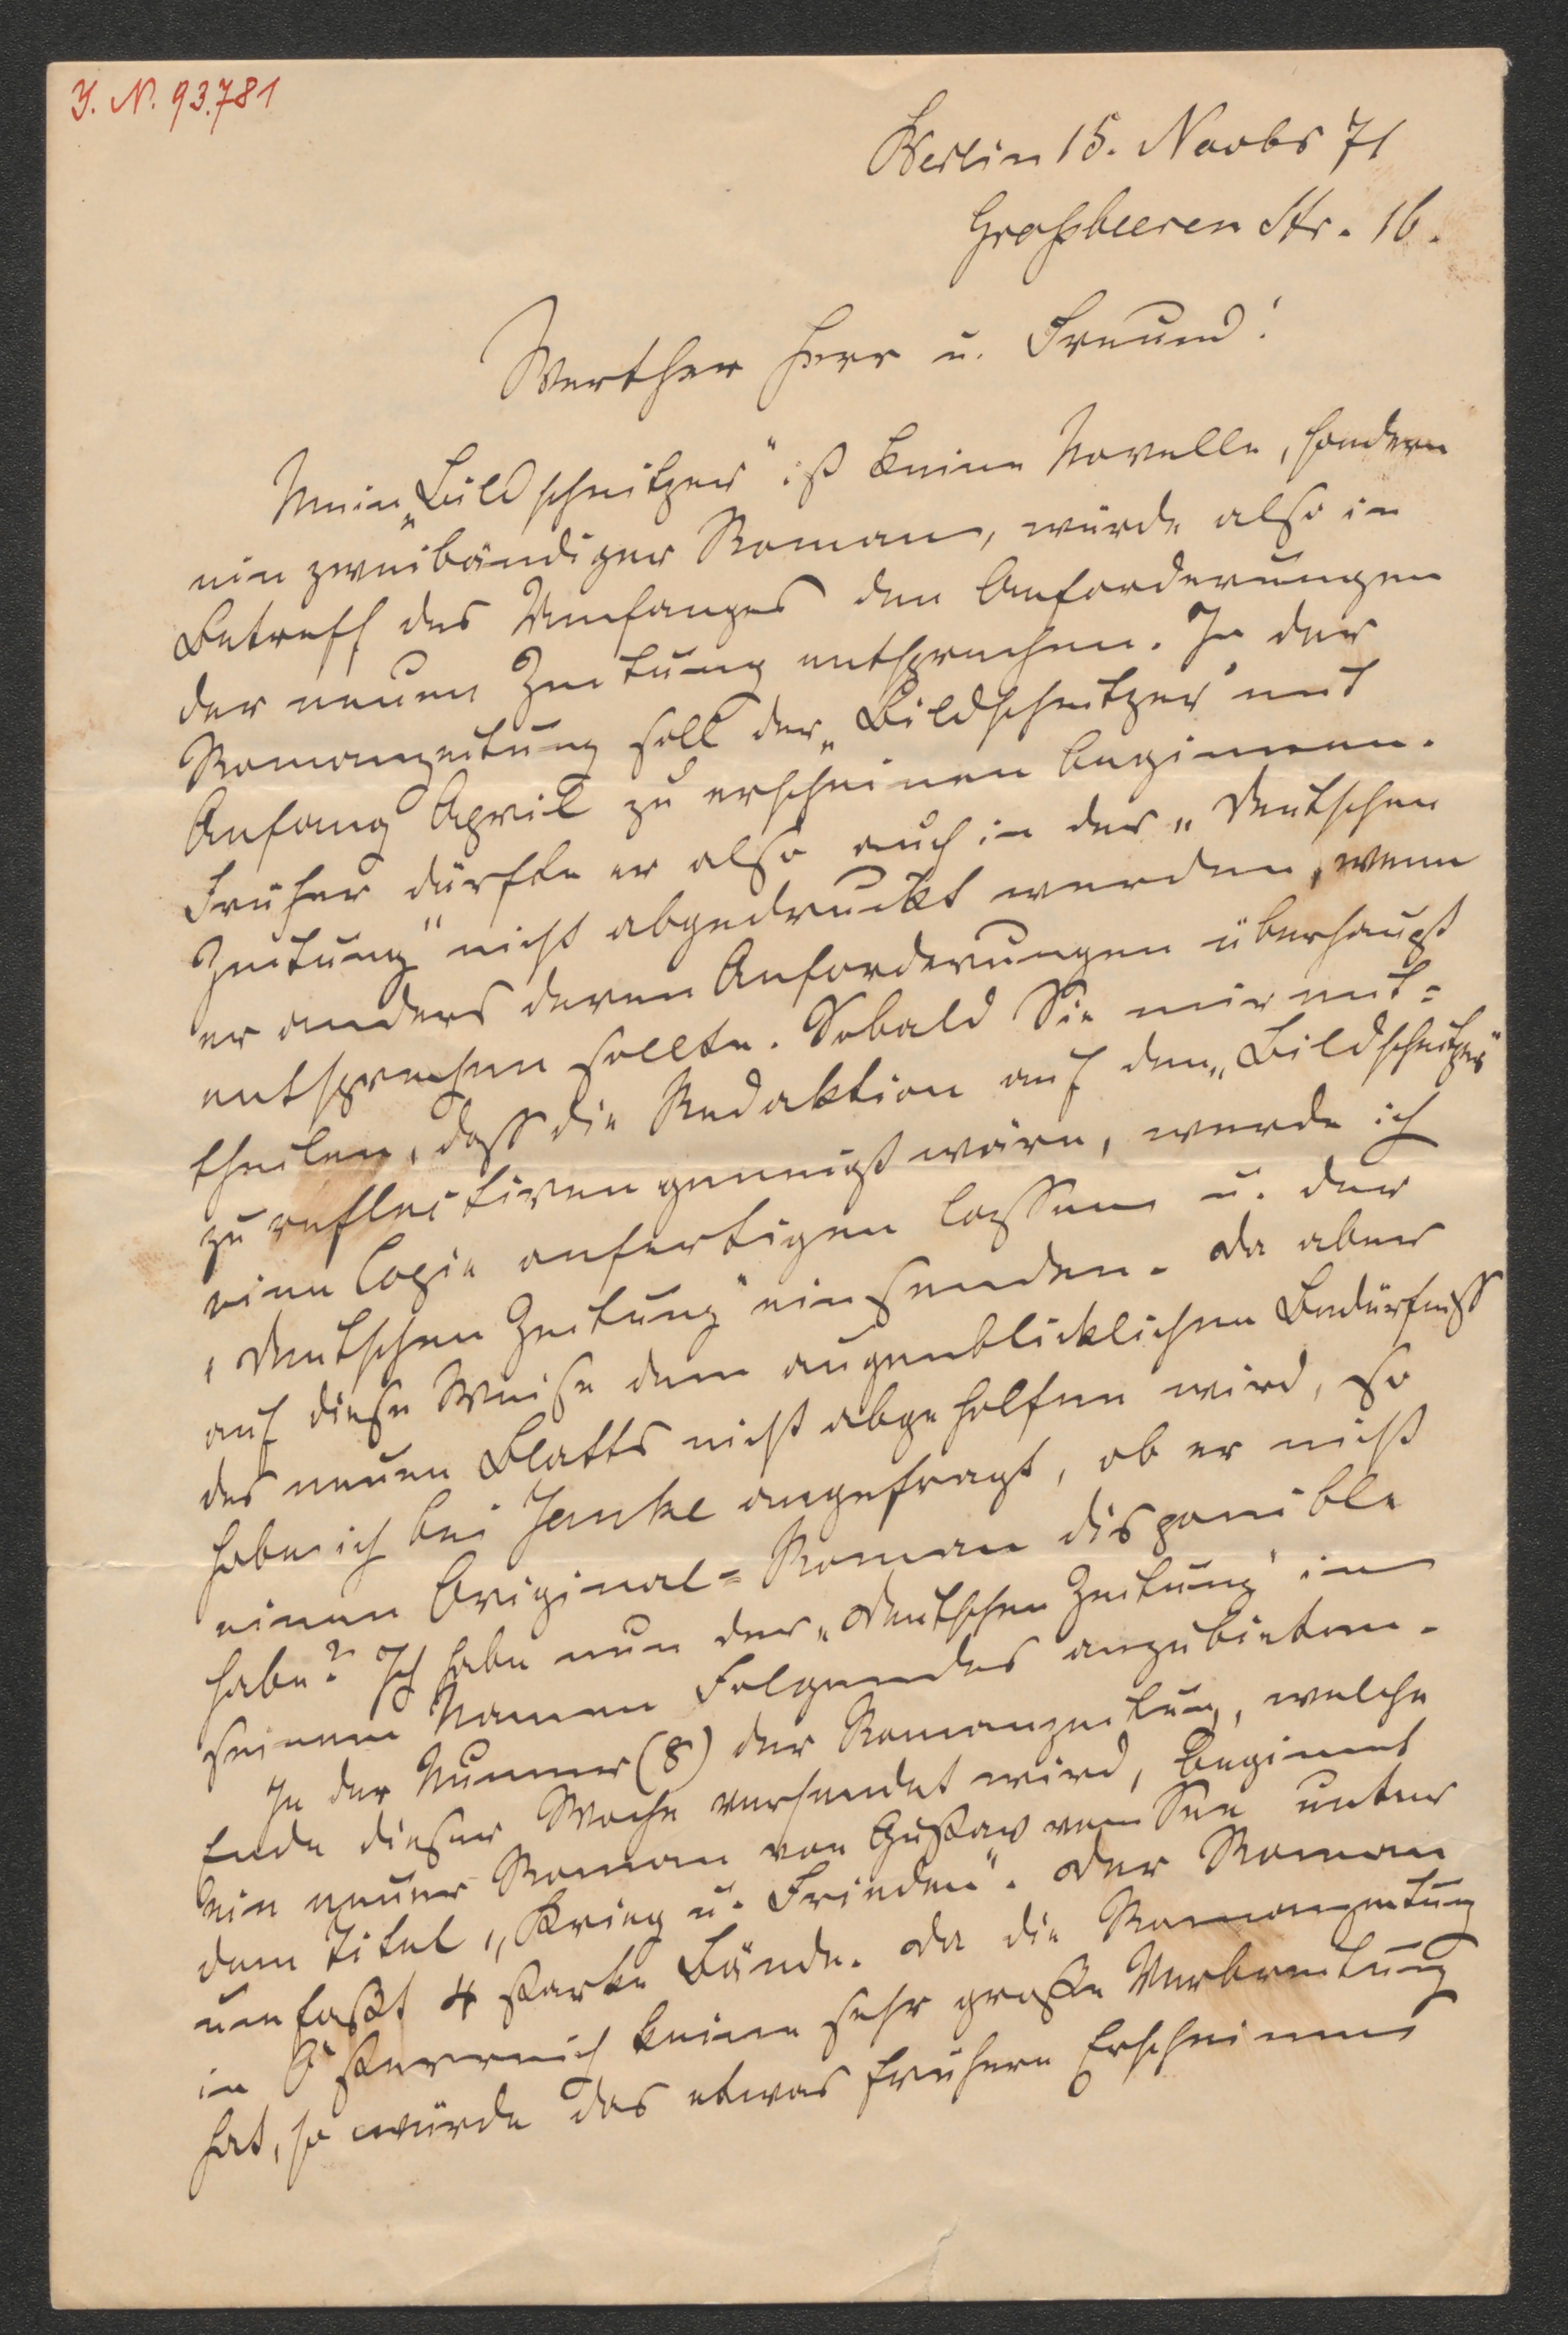 I. N. 93.781
Berlin 15. Novbr 71
Großbeeren Str. 16.
Werther Herr u. Freund!
Mein „Bildschnitzer" ist keine Novelle, sondern
ein zweibändiger Roman, würde also in
Betreff des Umfanges den Anforderungen
der neuen Zeitung entsprechen. In der
Romanzeitung soll der „Bildschnitzer" mit
Anfang April zu erscheinen beginnen.
Früher dürfte er also auch in der „Deutschen
Zeitung" nicht abgedruckt werden, wenn
er anders deren Anforderungen überhaupt
entsprechen sollte. Sobald Sie mir mit=
theilen, daß die Redaktion auf den „Bildschnitzer"
zu reflectiren geneigt wäre, werde ich
eine Copie anfertigen lassen u. der
„Deutschen Zeitung" einsenden. Da aber
auf diese Weise dem augenblicklichen Bedürfniß
des neuen Blatts nicht abgeholfen wird, so
habe ich bei Janke angefragt, ob er nicht
einen Original=Roman disponible
habe? Ich habe nun der „Deutschen Zeitung" in
seinem Namen Folgendes anzubieten.
In der Nummer (8) der Romanzeitung, welche
Ende dieser Woche versendet wird, beginnt
ein neuer Roman von Gustav vom See unter
dem Titel „Krieg u. Frieden". Der Roman
umfaßt 4 starke Bände. Da die Romanzeitung
in Österreich keine sehr große Verbreitung
hat, so würde das etwas frühere Erscheinen